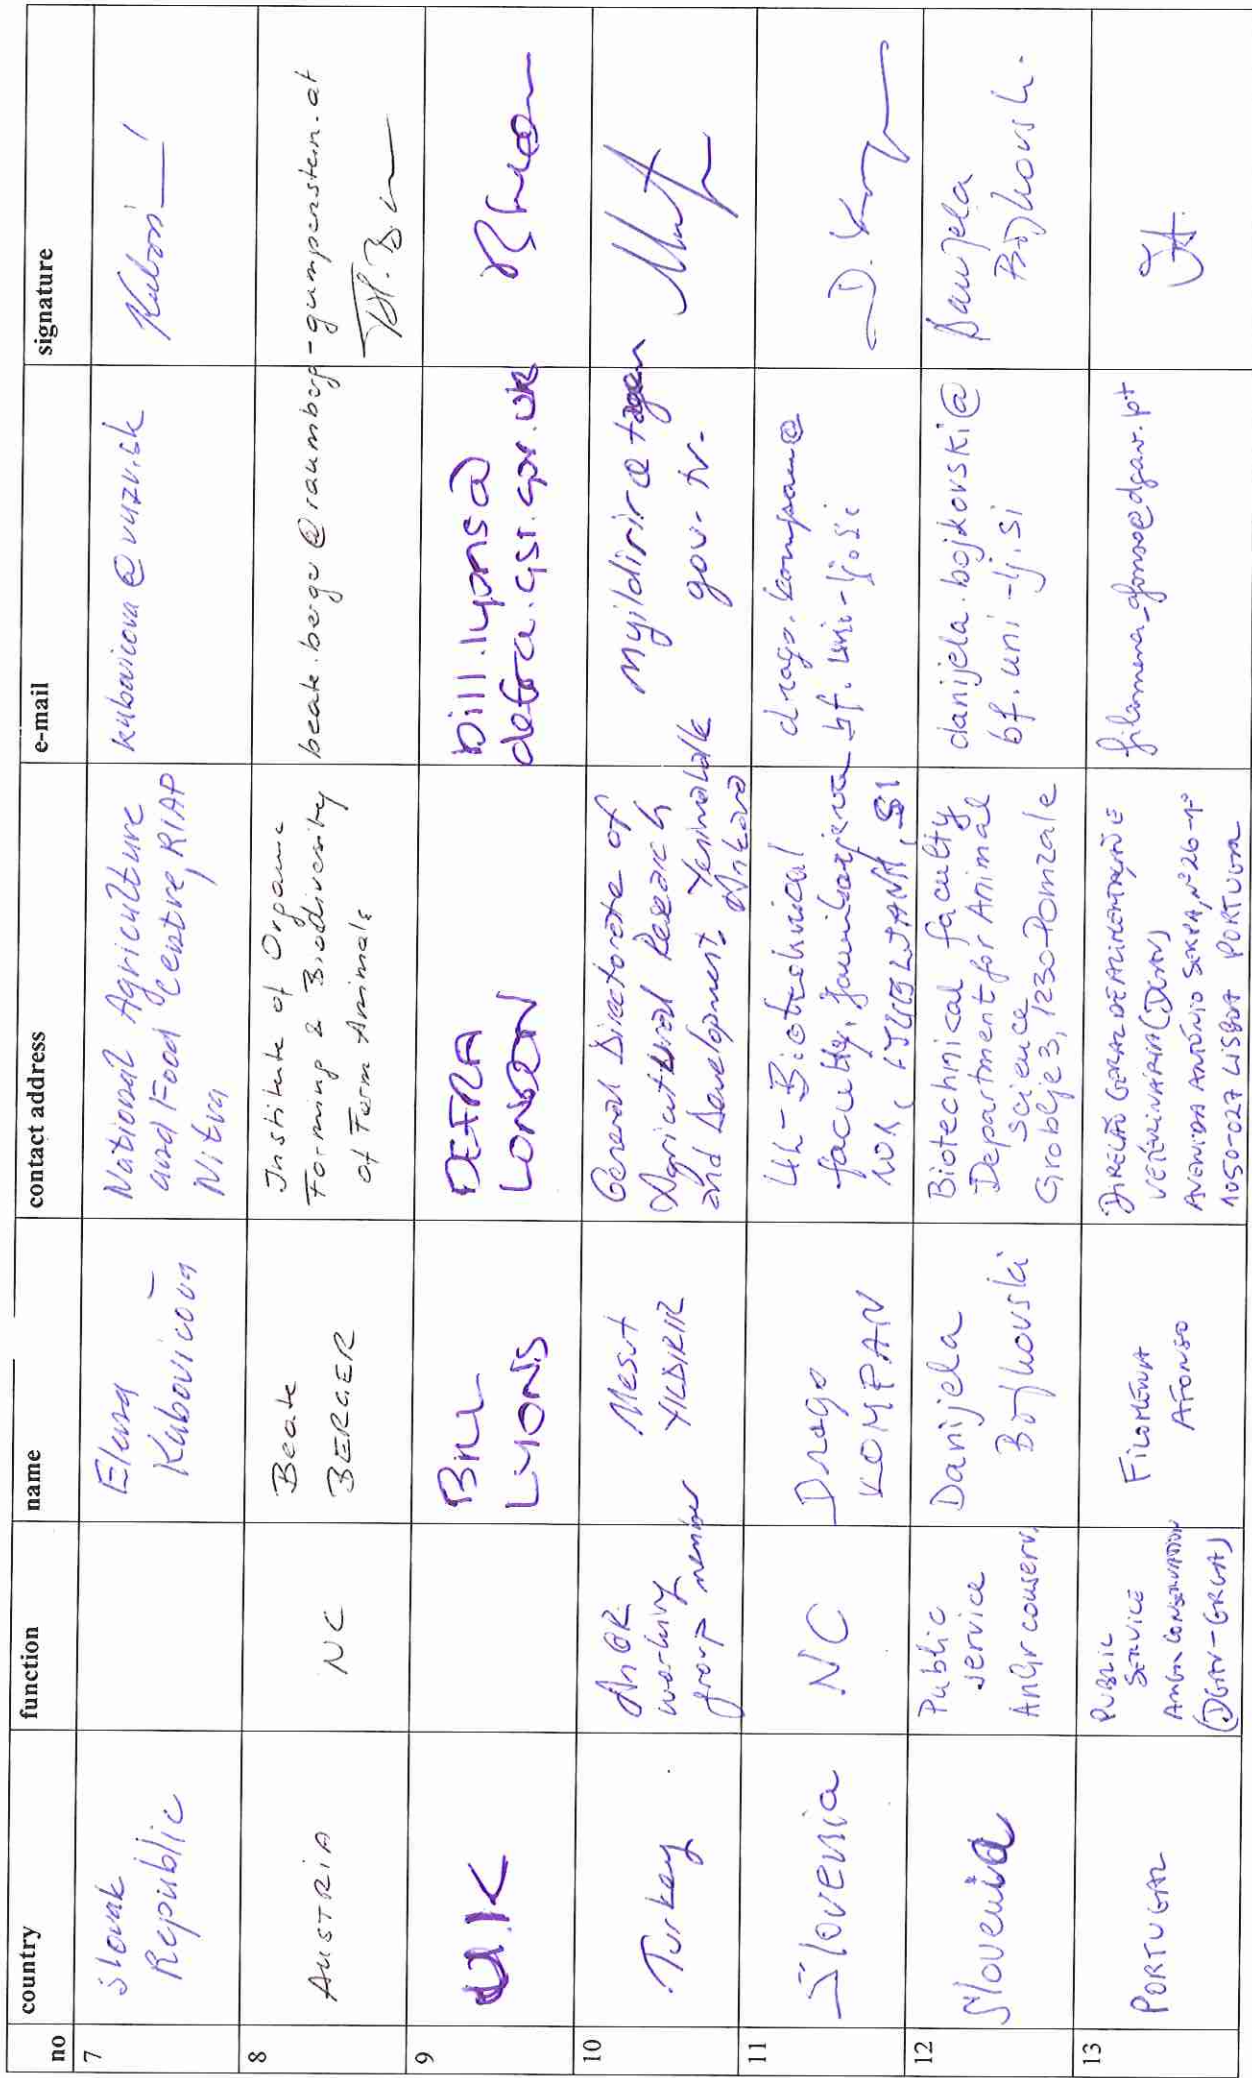 no country function name contact address e-mail signature
7
Slovak
Republic
Elena
Kubovičová
National Agriculture
and Food Centre, RIAP
Nitra
kubovicova@vuzv.sk
8
AUSTRIA
NC
Beate
BERGER
Institute of Organic
Farming & Biodiversity
of Farm Animals
beate.berger@raumberg-gumpenstein.at
9
U.K
BILL
LYONS
DEFRA
LONDON
bill.lyons@
defra.gsi.gov.uk
10
Turkey
AnGR
working
group member
Mesut
YILDIRIR
General Directorate of
Agricultural Research
and Development Yenimahalle
Ankara
myildirir@tagem
gov.tr.
11
Slovenia
NC
Drago
KOMPAN
UL-Biotechnical
faculty, Jamnikarjeva
101, LJUBLJANA, SI
drago.kompan@
bf.uni-lj.si
D. Kompan
12
Slovenia
Public
service
AnGr conserv.
Danijela
Bojkovski
Biotechnical faculty
Department for Animal
Science
Groblje 3, 1230 Domzale
danijela.bojkovski@
bf.uni-lj.si
Danijela
Bojkovski
13
PORTUGAL
PUBLIC
SERVICE
ANGR CONSERVATION
(DGAV-GRGA)
FILOMENA
AFONSO
DIREÇÃO GERAL DE ALIMENTAÇÃO E
VETERINÁRIA (DGAV)
AVENIDA ANTÓNIO SERPA, nº 26-4º
1050-027 LISBOA PORTUGAL
filomena_afonso@dgav.pt